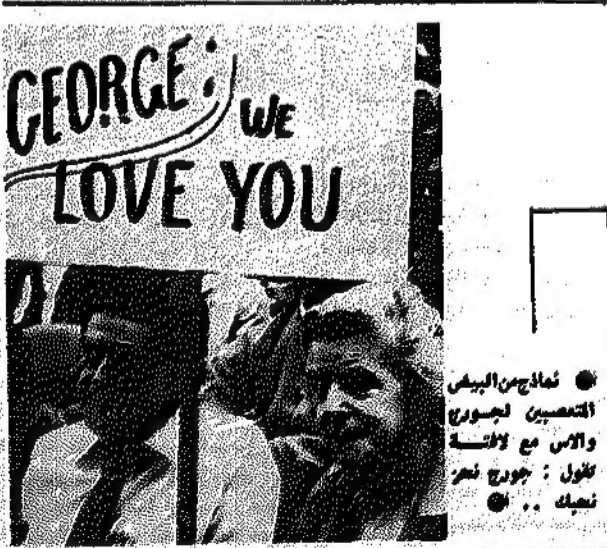 GEORGE:
WE
LOVE YOU
● نماذج من البيض
المتعصبين لجورج
والاس مع لافتة
تقول : جورج نحن
نحبك .. ●